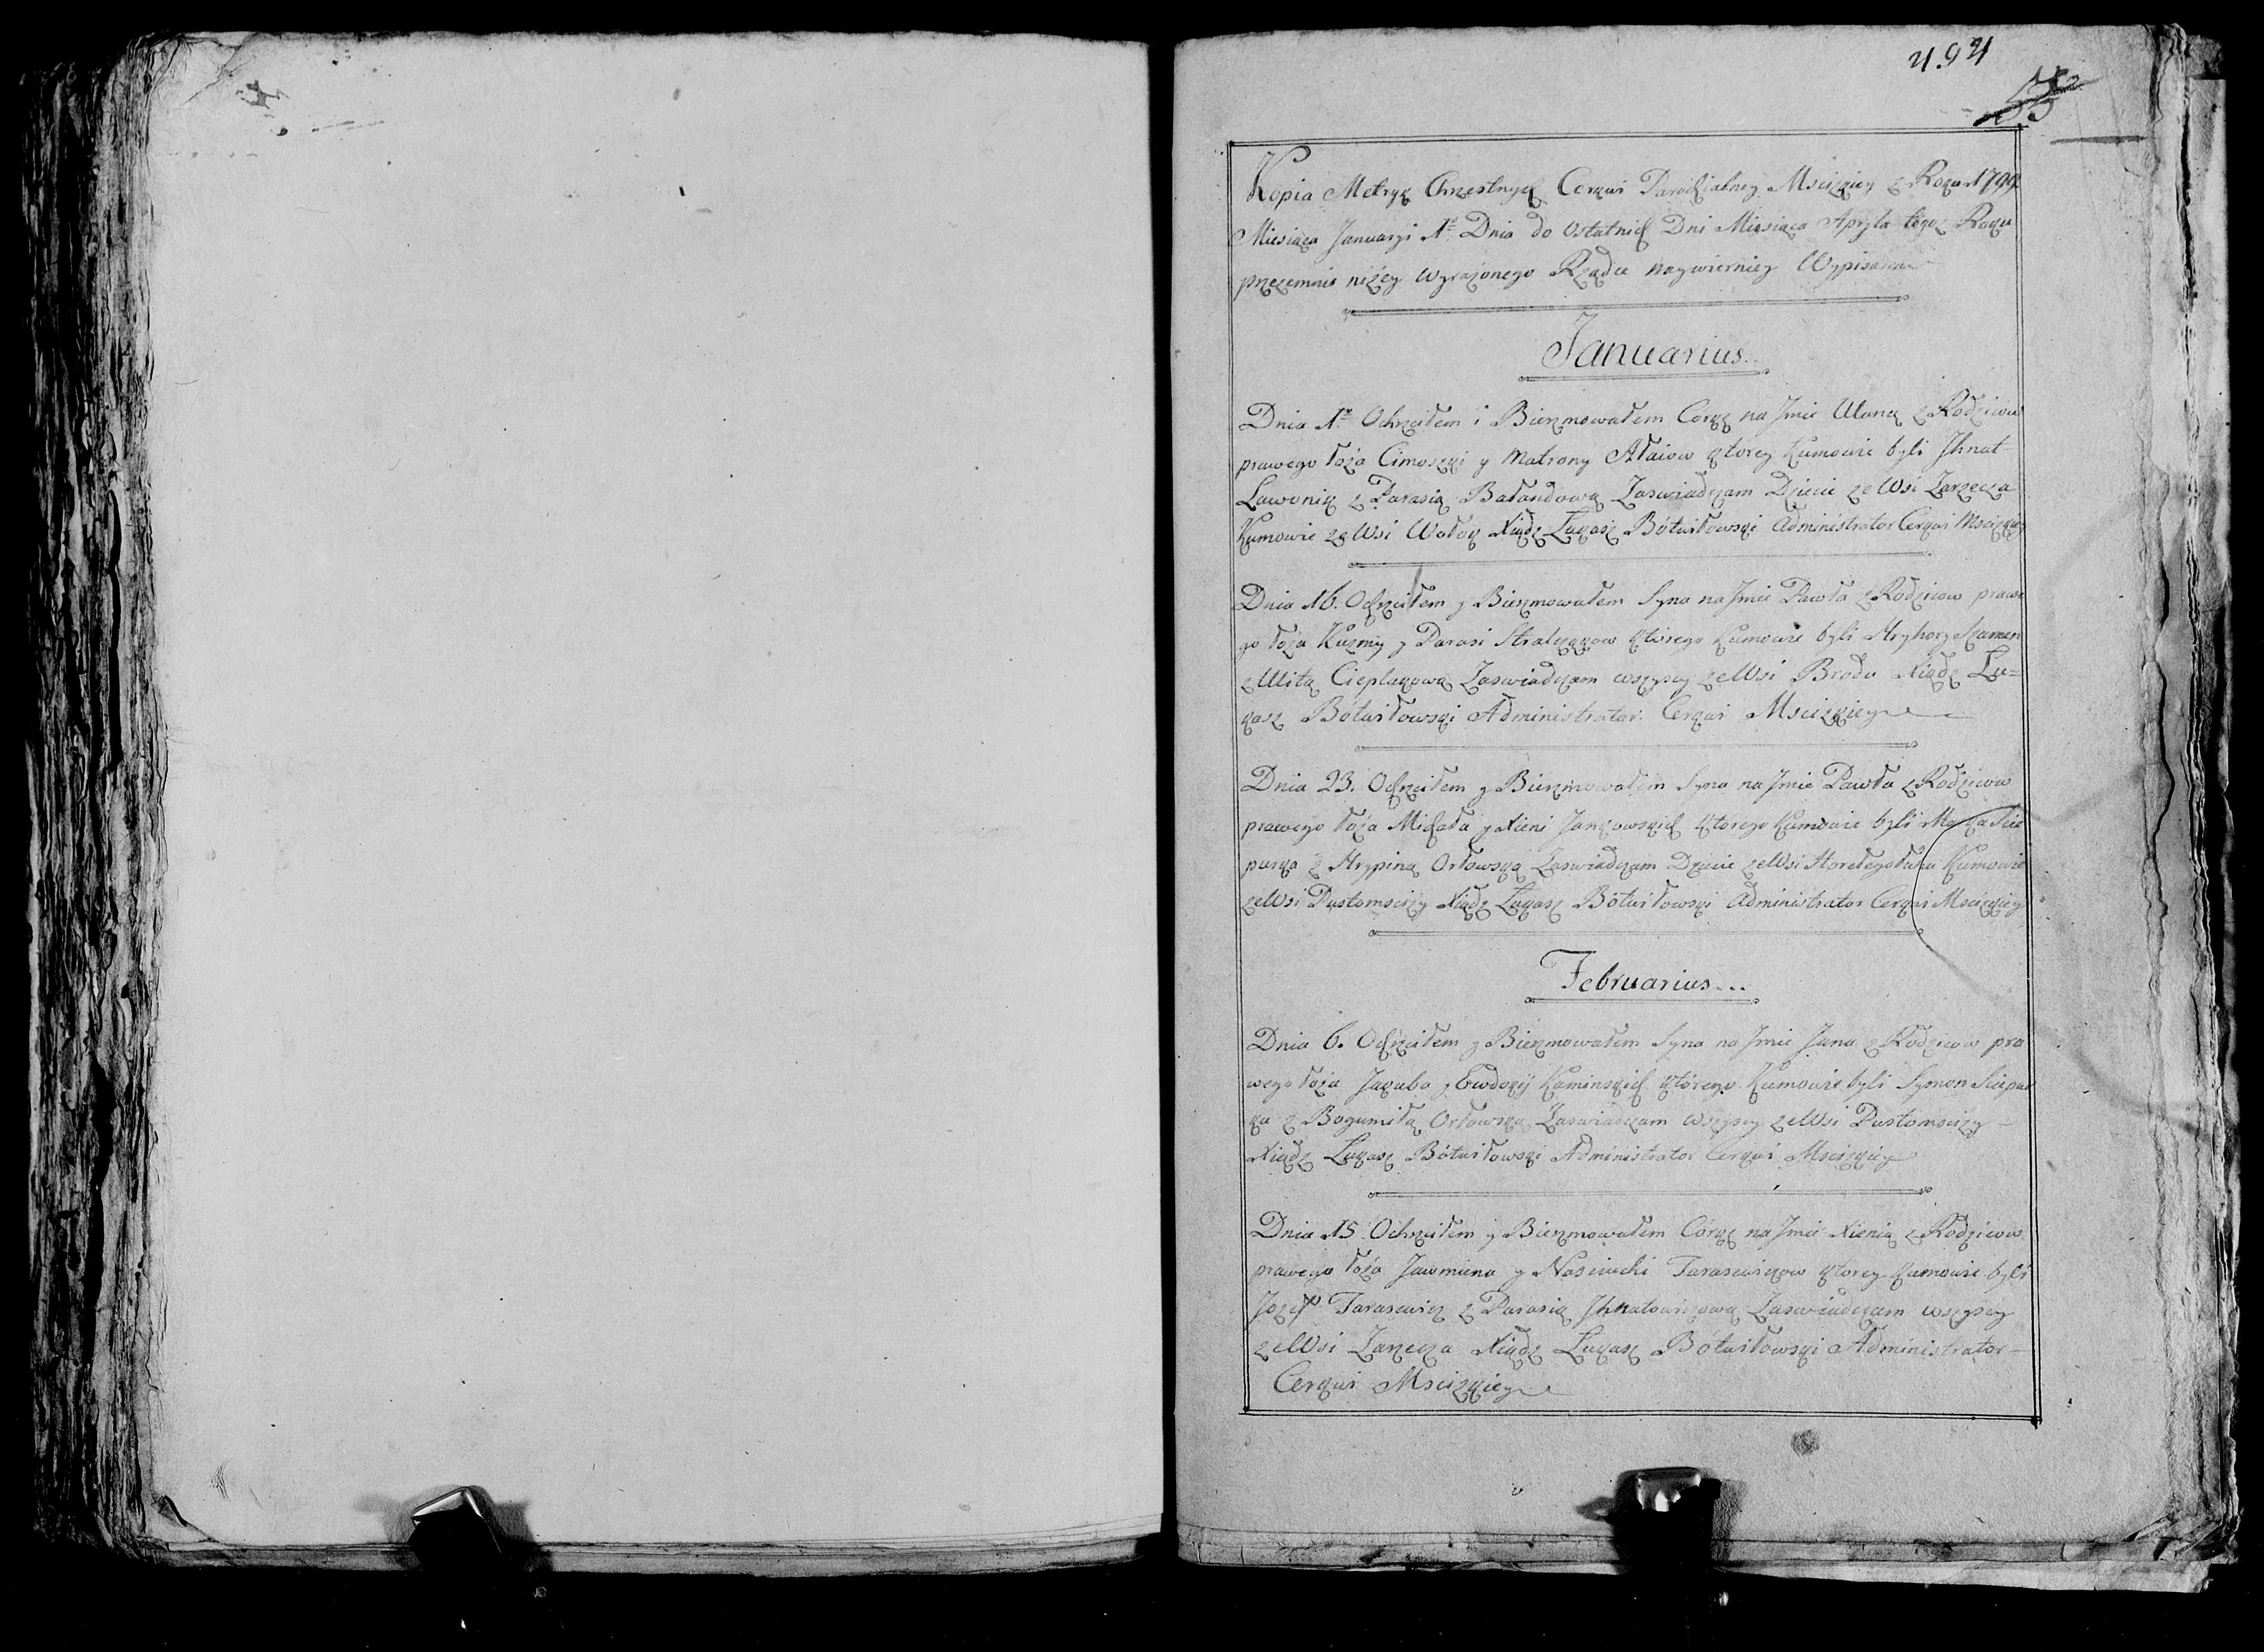 494
Kopia Metryk Chrzestnych Cerkwi Parochialney Mscizkiey z Roku 1799
Miesiąca Januaryi 1º Dnia do Ostatnich Dni Miesiąca Apryla tegoż Roku
przezemnie niżey wyrażonego Rządce naywierniey Wypisana
Januarius..
Dnia 1º Ochrzciłem i Bierzmowałem Corkę na Jmie Ulanę z Rodzicow
prawego łoża Cimoszki y Matrony Ałaiow ktorey Kumowie byli Jhnat
Lawonik z Parasią Bałandową Zaswiadczam Dziecie ze Wsi Zarzecza
Kumowie ze Wsi Wołok Xiądz Łukasz Bótwiłowski Administrator Cerkwi Mscizkiey
Dnia 16. Ochrzciłem y Bierzmowałem Syna na Jmie Pawła z Rodzicow prawe
go łoża Kuzmy y Parasi Stralczykow ktorego Kumowie byli Hryhory Szumen
z Ulitą Cieplakową Zaswiadczam wszyscy ze Wsi Brodu Xiądz Lu=
kasz Bótwiłowski Administrator Cerkwi Mscizkiey
Dnia 23. Ochrzciłem y Bierzmowałem Syna na Jmie Pawła z Rodzicow
prawego łoża Michała y Xieni Jankowskich ktorego Kumowie byli Sie
purka z Hrypiną Orłowską Zaswiadczam Dziecie ze Wsi Horełegołuha Kumowie
ze Wsi Pustomscizy Xiądz Łukasz Bótwiłowski Administrator Cerkwi Mscizkiey
Februarius...
Dnia 6. Ochrzciłem y Bierzmowałem Syna na Jmie Jana z Rodzicow pra
wego łoża Jakuba y Ewdokij Kaminskich ktorego Kumowie byli Symon Sciepur
ka z Bogumiłą Orłowską Zaswiadczam wszyscy ze Wsi Pustomscizy
Xiądz Łukasz Bótwiłowski Administrator Cerkwi Mscizkiey
Dnia 15 Ochrzciłem y Bierzmowałem Córkę na Jmie Xienią z Rodzicow
prawego łoża Jawmiena y Nasciuchi Tarasewiczow ktorey Kumowie byli
Jozef Tarasewicz z Parasią Jhnatowiczową Zaswiadczam wszyscy
ze Wsi Zarzecza Xiądz Łukasz Bótwiłowski Administrator
Cerkwi Mscizkiey